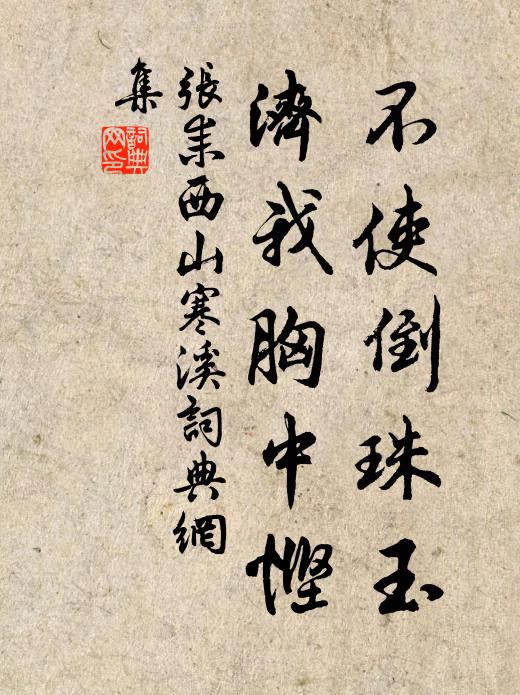 不使倒珠玉
濟我胸中慳
張耒西山寒溪詞典網
集
詞典網印